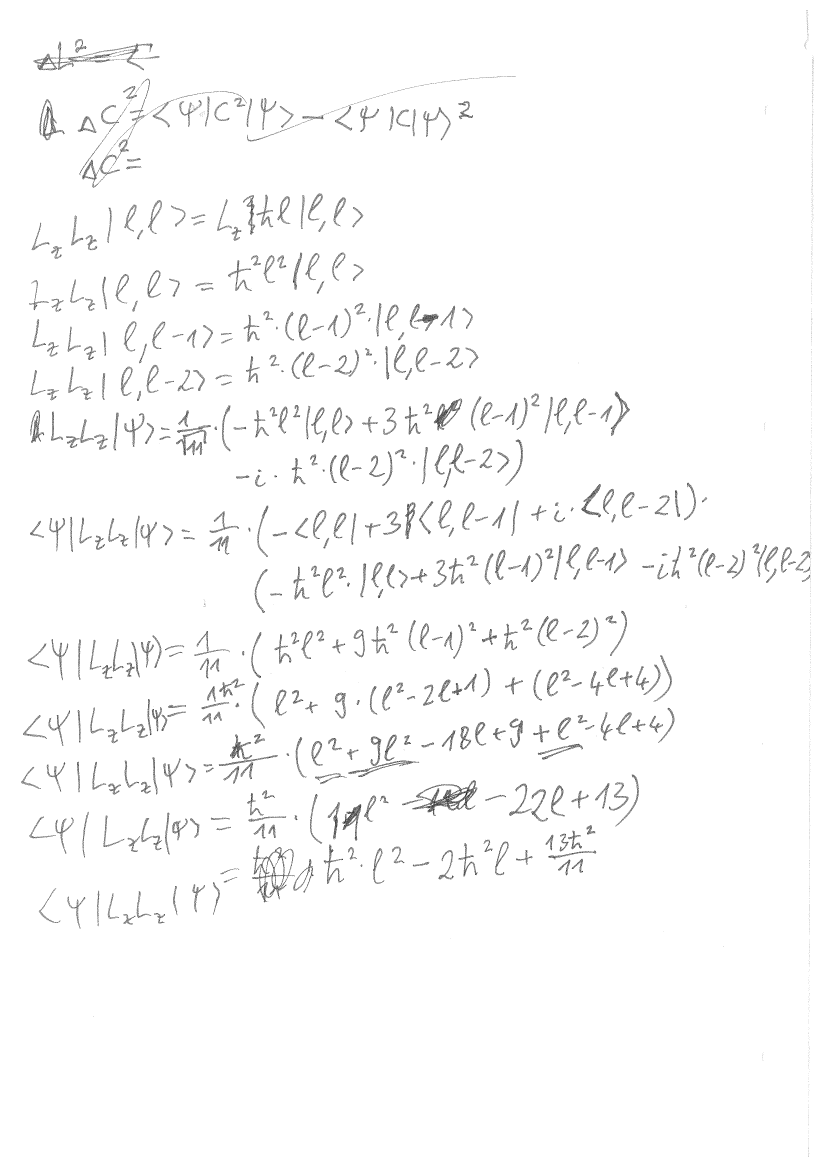 ΔC² = <Ψ|C²|Ψ> − <Ψ|C|Ψ>²
ΔC² =
L_z L_z |l,l> = L_z ħl |l,l>
L_z L_z |l,l> = ħ²l² |l,l>
L_z L_z |l,l−1> = ħ²·(l−1)²·|l,l−1>
L_z L_z |l,l−2> = ħ²·(l−2)²·|l,l−2>
L_z L_z |Ψ> = 1/√11 · (−ħ²l²|l,l> + 3ħ² (l−1)² |l,l−1>
−i·ħ²·(l−2)²·|l,l−2>)
<Ψ|L_z L_z|Ψ> = 1/11 · (−<l,l| + 3<l,l−1| + i·<l,l−2|)·
(−ħ²l²·|l,l> + 3ħ²(l−1)²|l,l−1> −iħ²(l−2)²|l,l−2
<Ψ|L_z L_z|Ψ> = 1/11 · (ħ²l² + 9ħ²(l−1)² + ħ²(l−2)²)
<Ψ|L_z L_z|Ψ> = 1ħ²/11 · (l² + 9·(l²−2l+1) + (l²−4l+4))
<Ψ|L_z L_z|Ψ> = ħ²/11 · (l² + 9l² − 18l + 9 + l² − 4l + 4)
<Ψ|L_z L_z|Ψ> = ħ²/11 · (11l² − 22l + 13)
<Ψ|L_z L_z|Ψ> = ħ²·l² − 2ħ²l + 13ħ²/11